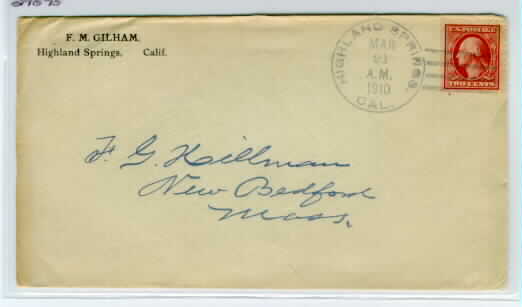 F. M. GILHAM.
Highland Springs, Calif.
HIGHLAND SPRINGS,
MAR
A.M.
1910
CAL.
TWO CENTS
F. G. Hillman
New Bedford
Mass.